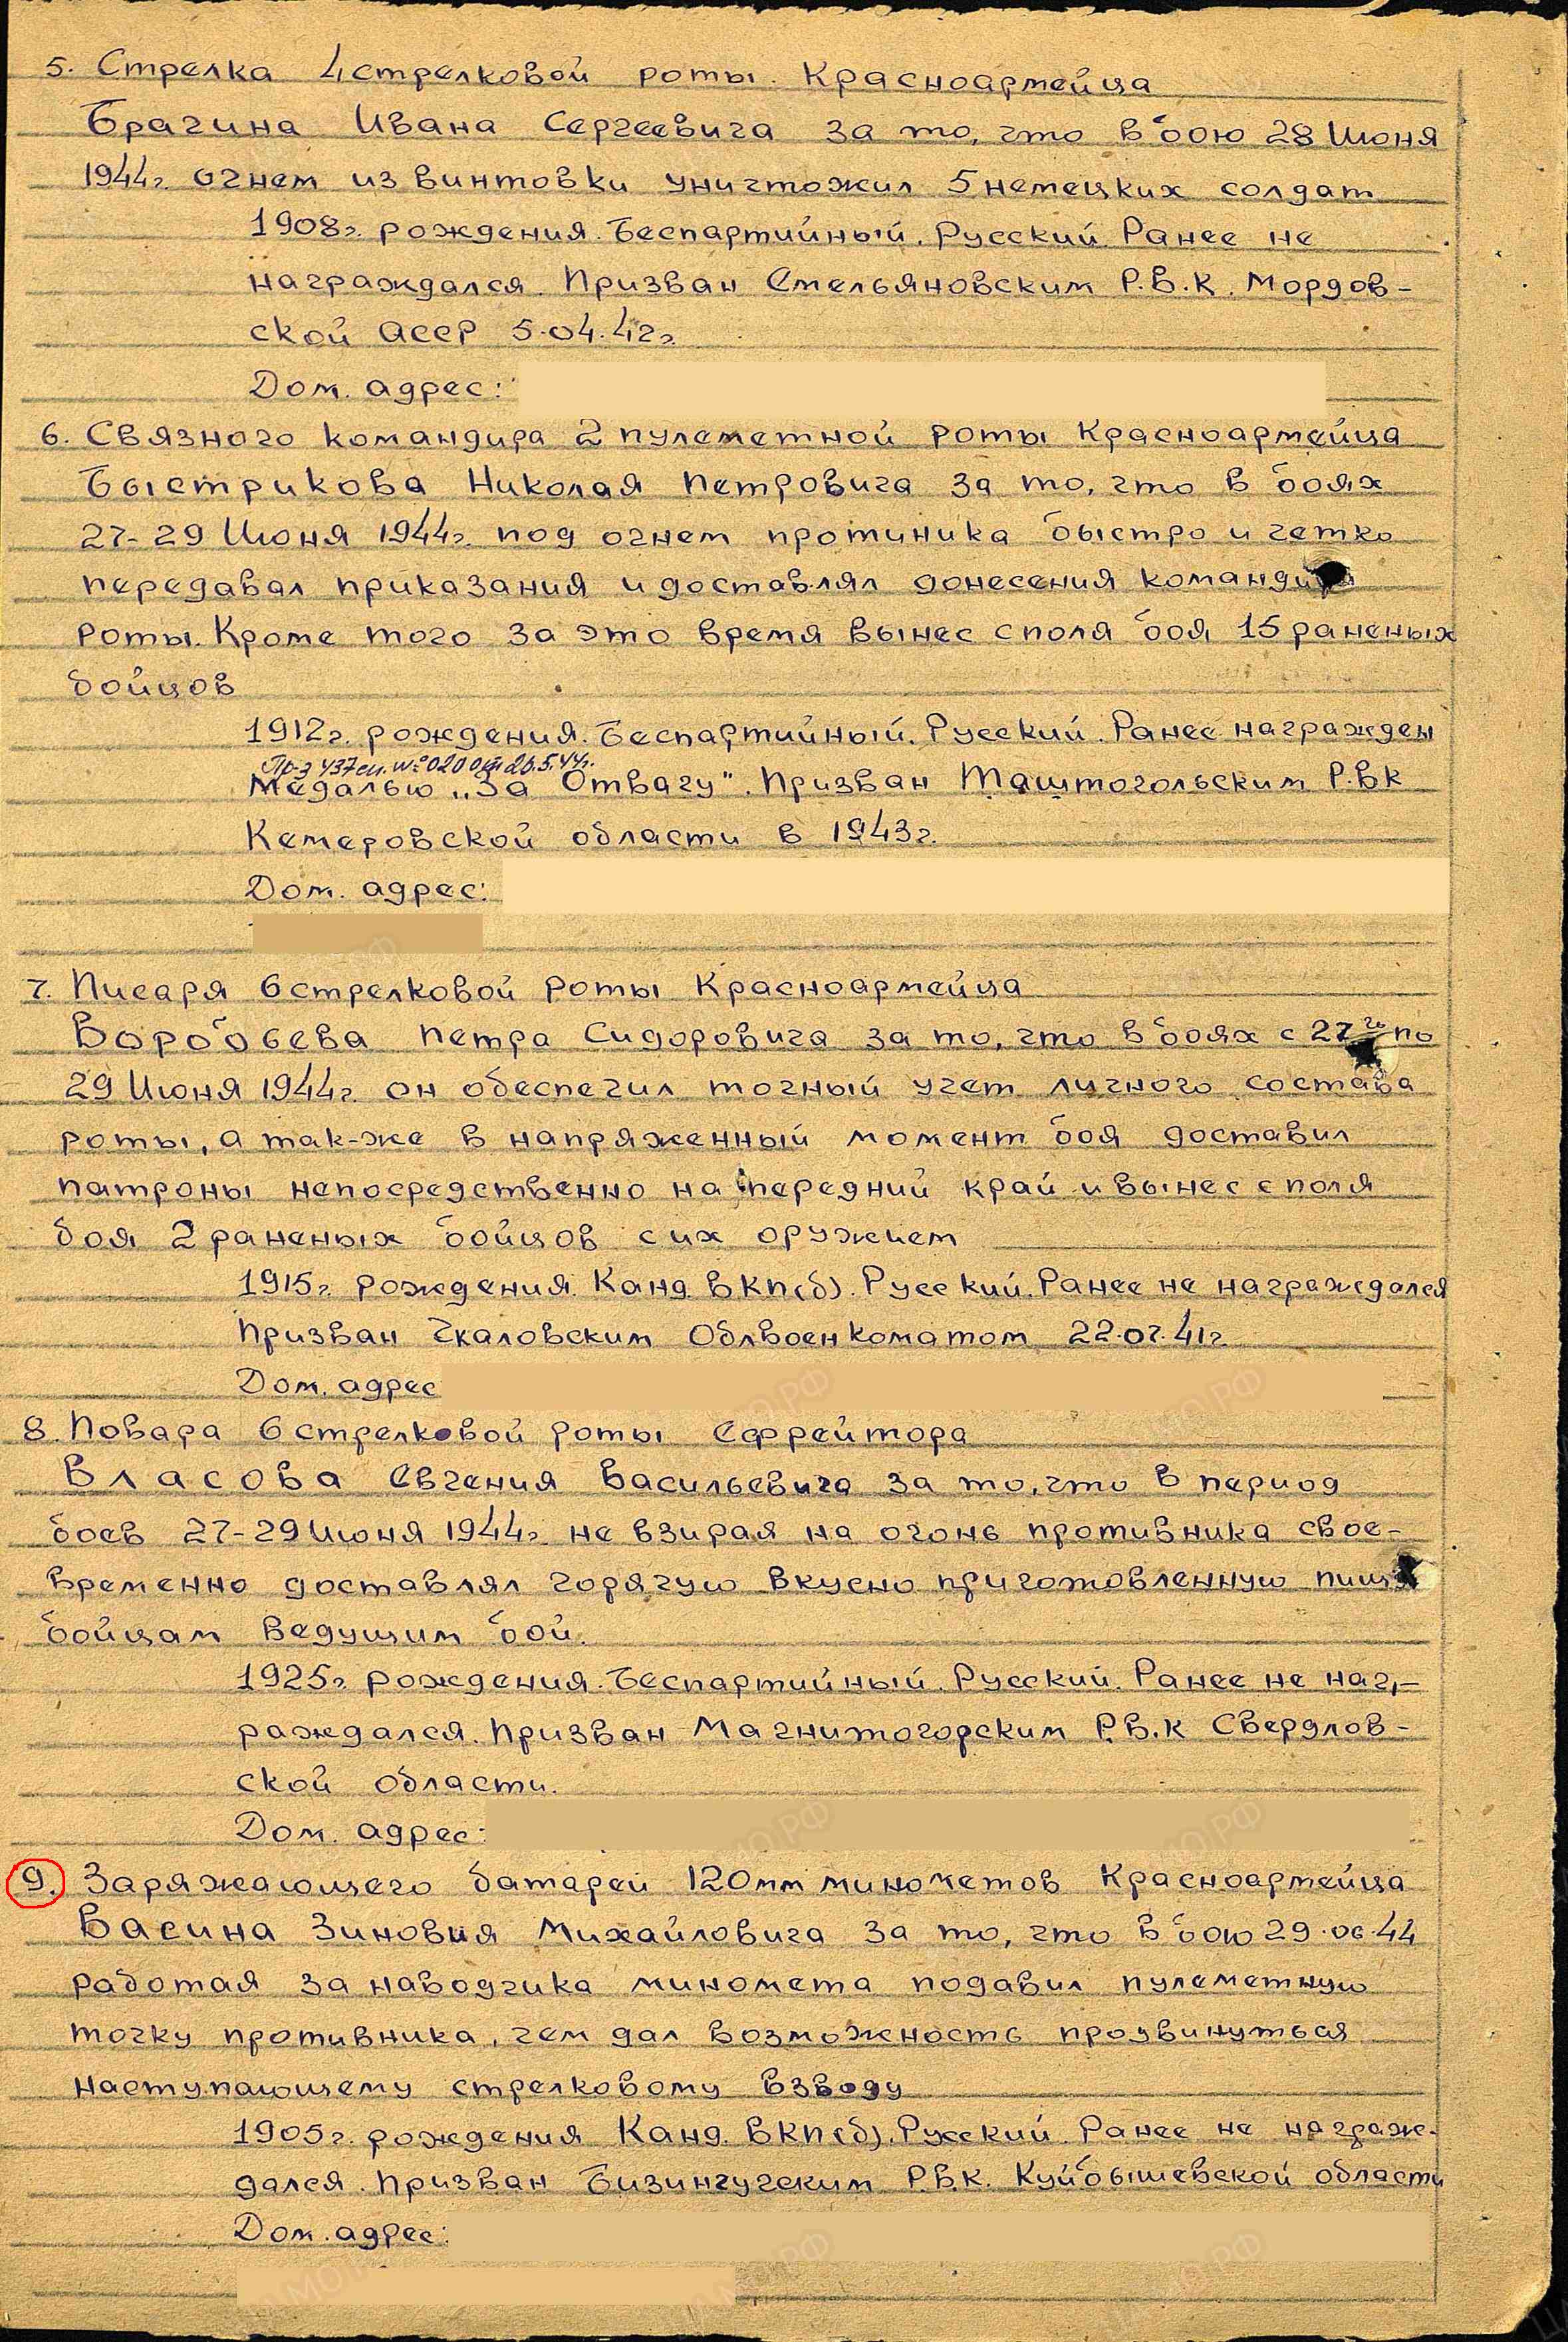 5. Стрелка 4 стрелковой роты. Красноармейца
Брагина Ивана Сергеевича за то, что в бою 28 Июня
1944г. огнем из винтовки уничтожил 5 немецких солдат
1908г. рождения. Беспартийный. Русский. Ранее не
награждался. Призван Емельяновским Р.В.К. Мордов-
ской АССР 5.04.42г.
Дом. адрес:
6. Связного командира 2 пулеметной роты Красноармейца
Быстрикова Николая Петровича за то, что в боях
27-29 Июня 1944г. под огнем протиника быстро и четко
передавал приказания и доставлял донесения командира
роты. Кроме того за это время вынес с поля боя 15 раненых
бойцов
1912г. рождения. Беспартийный. Русский. Ранее награжден
Пр-з 437 сп. №020 от 26.5.44г.
Медалью „За Отвагу". Призван Таштогольским Р.В.К
Кемеровской области в 1943г.
Дом. адрес:
7. Писаря 6 стрелковой роты Красноармейца
Воробьева Петра Сидоровича за то, что в боях с 27го по
29 Июня 1944г. он обеспечил точный учет личного состава
роты, а так-же в напряженный момент боя доставил
патроны непосредственно на передний край и вынес с поля
боя 2 раненых бойцов с их оружием
1915г. рождения. Канд. ВКП(б). Русский. Ранее не награждался
Призван Чкаловским Облвоенкоматом 22.07.41г.
Дом. адрес
8. Повара 6 стрелковой роты Ефрейтора
Власова Евгения Васильевича за то, что в период
боев 27-29 Июня 1944г. не взирая на огонь противника свое-
временно доставлял горячую вкусно приготовленную пищу
бойцам ведущим бой.
1925г. рождения. Беспартийный. Русский. Ранее не наг-
раждался. Призван Магнитогорским Р.В.К Свердлов-
ской области.
Дом. адрес:
9. Заряжающего батареи 120мм минометов Красноармейца
Васина Зиновия Михайловича за то, что в бою 29.06.44
работая за наводчика миномета подавил пулеметную
точку противника, чем дал возможность продвинуться
наступающему стрелковому взводу
1905г. рождения Канд. ВКП(б). Русский. Ранее не награж-
дался. Призван Бизинчугским Р.В.К. Куйбышевской области
Дом. адрес: